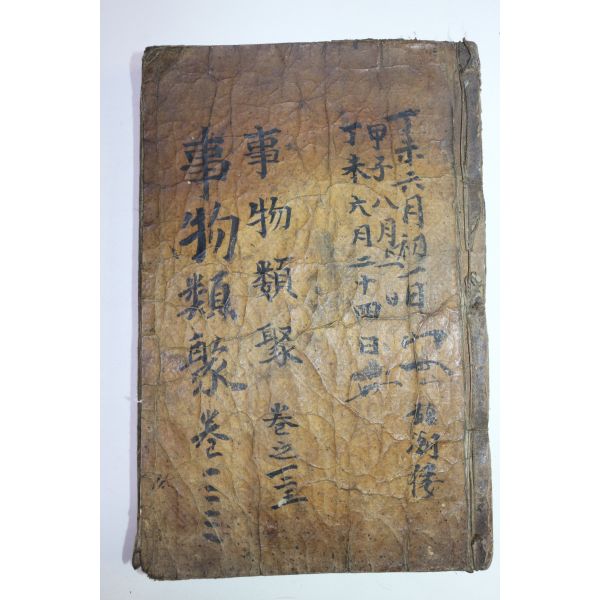 丁未六月初一日
甲子八月
丁未六月二十四日
事物類聚 卷之一二三
事物類聚 卷一二三